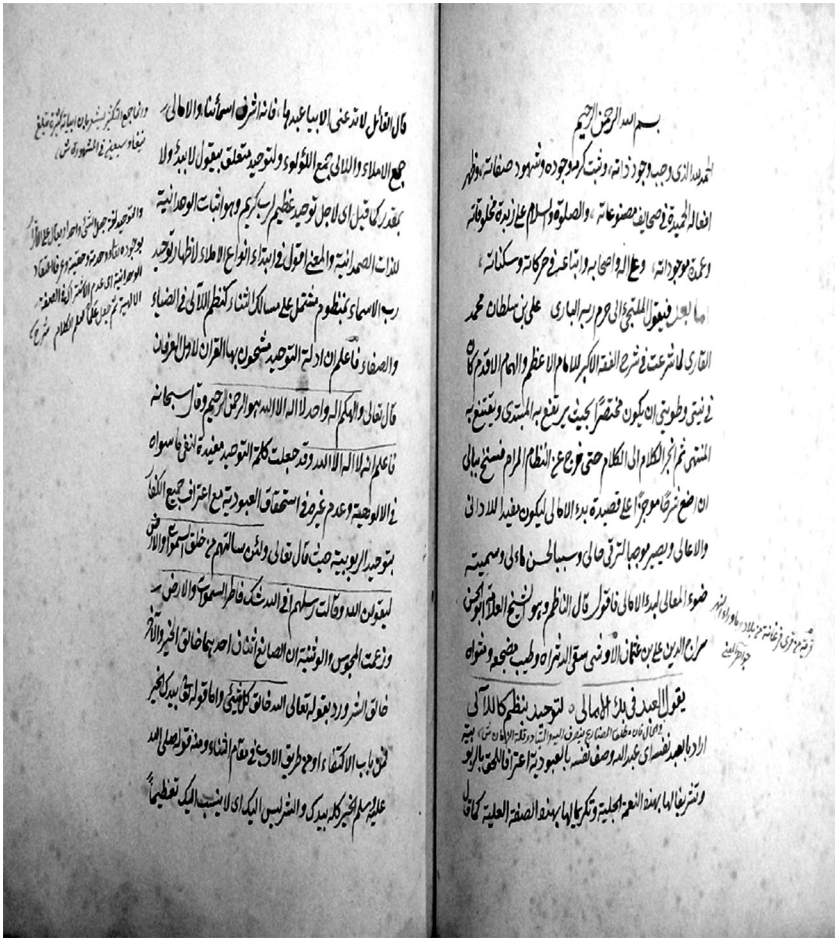 بسم الله الرحمن الرحيم
الحمد لله الذى وجب وجود ذاته، وثبت كرم وجوده وشهود صفاته، وظهر
افعاله الحميدة فى صحايف مصنوعاته، والصلوة والسلام على زبدة مخلوقاته
وعمدة موجوداته، وعلى اله واصحابه واتباعه فى حركاته وسكناته،
اما بعد فيقول الملتجئ الى حرم ربه البارى على بن سلطان محمد
القارى لما شرعت فى شرح الفقه الاكبر للامام الاعظم والهمام الاقدم كان
فى نيتى وطويتى ان يكون مختصرا بحيث يرتفع به المبتدى ويقتنع به
المنتهى ثم انجر الكلام الى الكلام حتى خرج عن النظام المرام فسنح ببالى
ان اضع شرحا موجزا على قصيدة بدء الامالى ليكون مفيدا للادانى
والاعالى ويصير موجبا لترقى حالى وسببا لحسن مالى وسميته
ضوء المعالى لبدء الامالى فاقول قال الناظم وهو الشيخ العلامة ابو الحسن
سراج الدين على بن عثمان الاوشى سقى الله ثراه وطيب مضجعه ومثواه
يقول العبد فى بدء الامالى، لتوحيد بنظم كاللآلى
اراد بالعبد نفسه اى عبد الله وصف نفسه بالعبودية اعترافا للحق بالربوبية
وتشريفا لها بهذه النعمة الجلية وتكريما لها بهذه الصفة العلية كما قال
قال القائل لا تدعنى الا بيا عبدها، فانه اشرف اسمائنا، والامالى
جمع الاملاء واللالى جمع اللؤلوء ولتوحيد متعلق بيقول لا ببدؤ ولا
بمقدر كما قيل اى لاجل توحيد عظيم لرب كريم وهو اثبات الوحدانية
للذات الصمدانية والمعنى اقول فى ابتداء انواع الاملاء لاظهار توحيد
رب الاسماء بمنظوم مشتمل على مسالك الثناء كنظم اللآلى فى الضياء
والصفاء فاعلم ان ادلة التوحيد مشحون بها القران لاهل العرفان
قال تعالى والهكم اله واحد لا اله الا الله هو الرحمن الرحيم وقال سبحانه
فاعلم انه لا اله الا الله وقد جعلت كلمة التوحيد مفيدة لنفى ما سواه
فى الالوهية وعدم غيره فى استحقاق العبودية مع اعتراف جميع الكفار
بتوحيد الربوبية حيث قال تعالى ولئن سالتهم من خلق السموات والارض
ليقولن الله وقالت رسلهم افى الله شك فاطر السموات والارض
وزعمت المجوس والوثنية ان الصانع اثنان احدهما خالق الخير والآخر
خالق الشر ورد بقوله تعالى الله خالق كل شئ واما قوله تع بيدك الخير
فمن باب الاكتفاء او من طريق الادب فى مقام الثناء ومنه قوله صلى الله
عليه وسلم الخير كله بيدك والشر ليس اليك اى لا ينسب اليك تعظيما